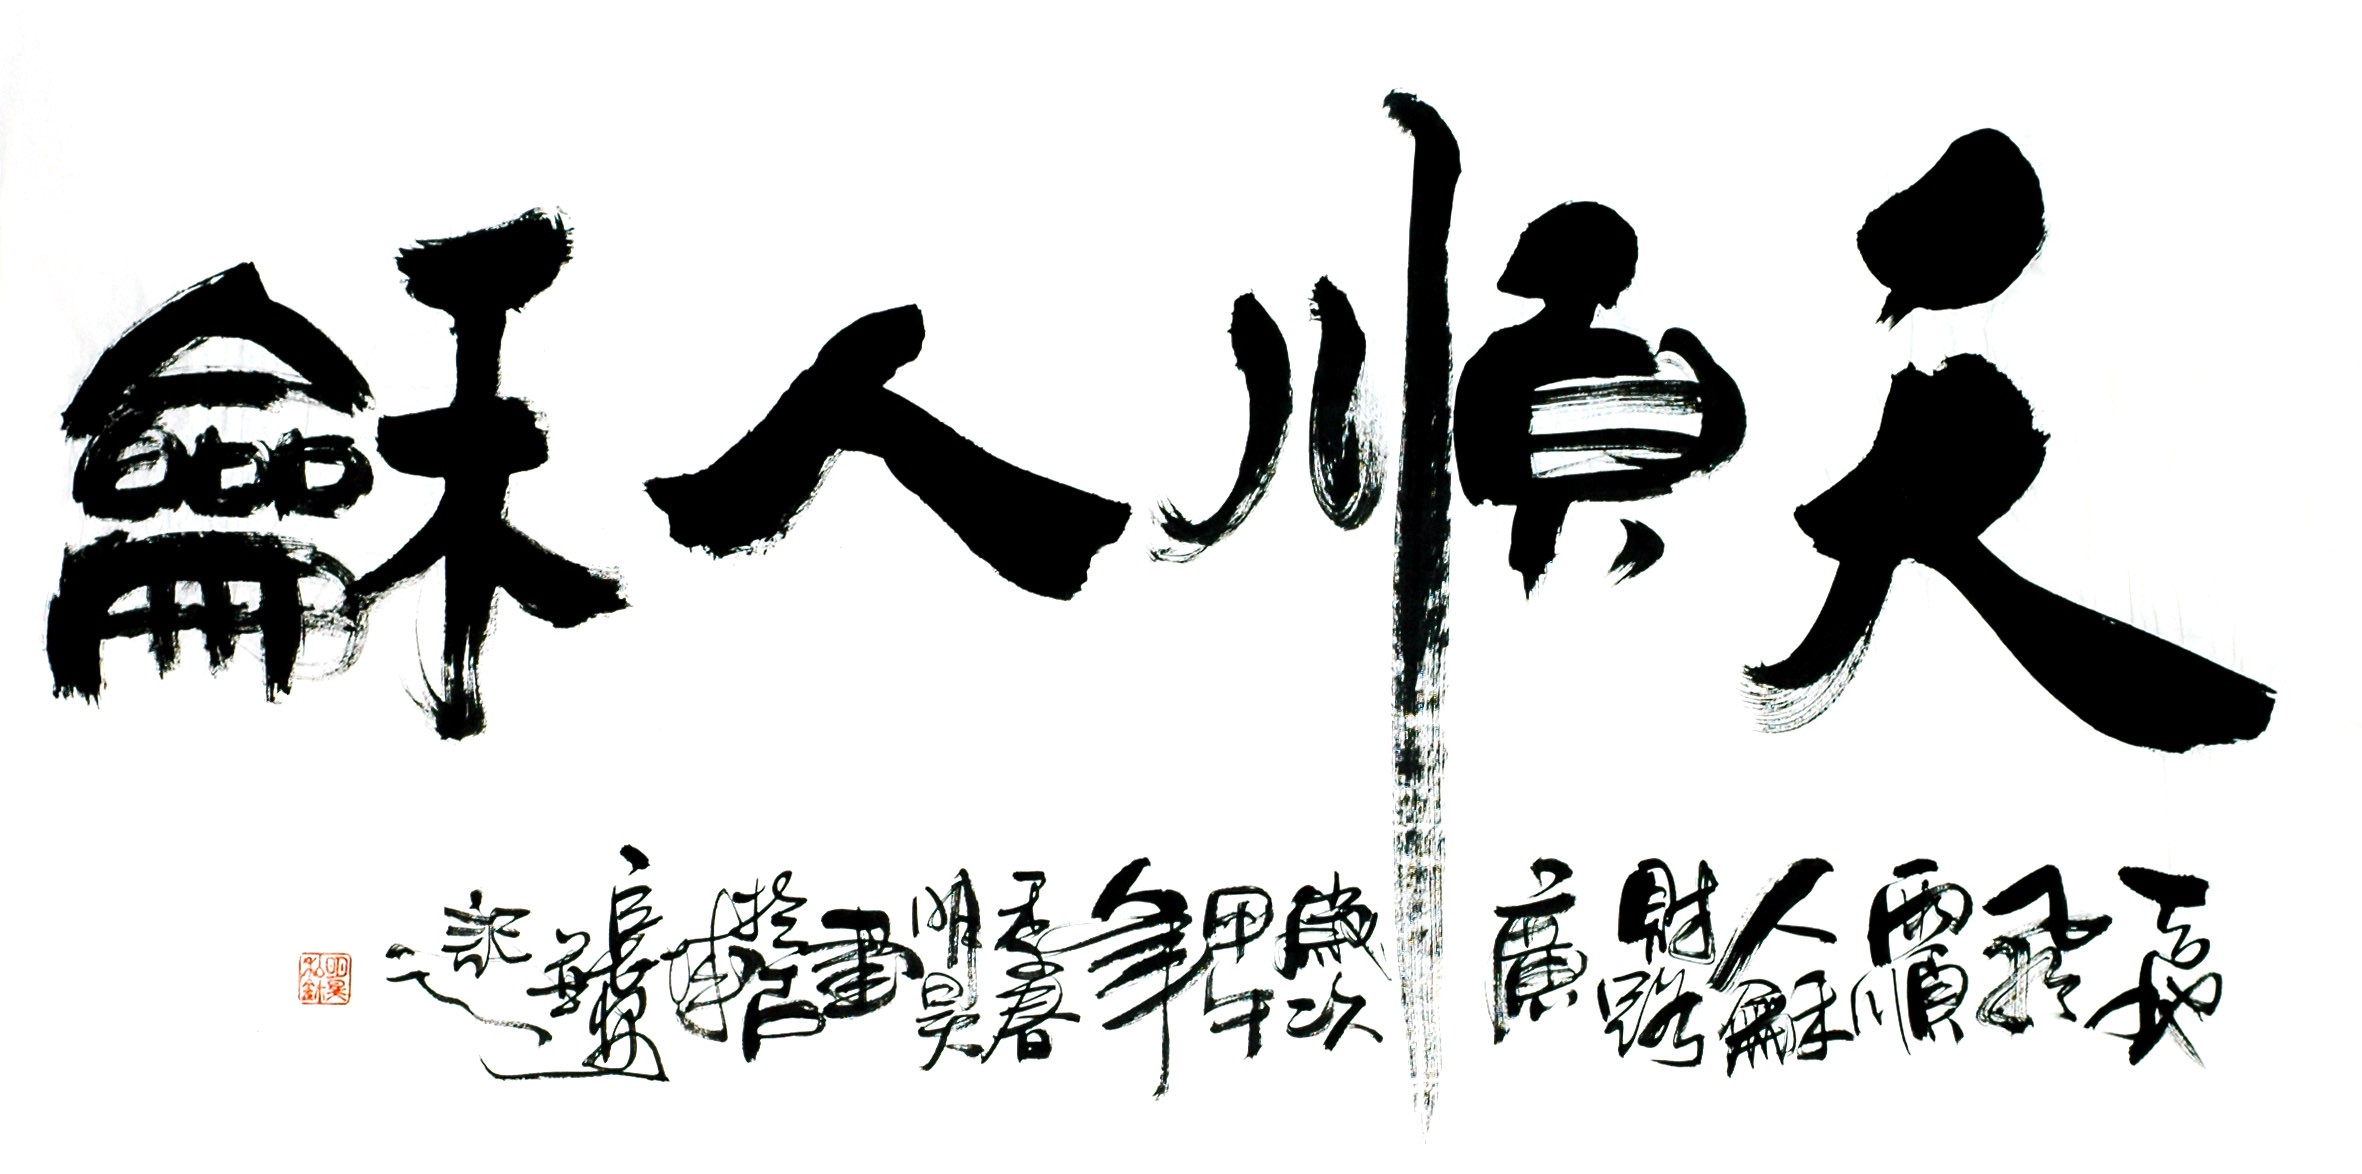 天順人龢
風雨順人龢財路廣
歲次甲午年春明昊書於記
明昊私鉨